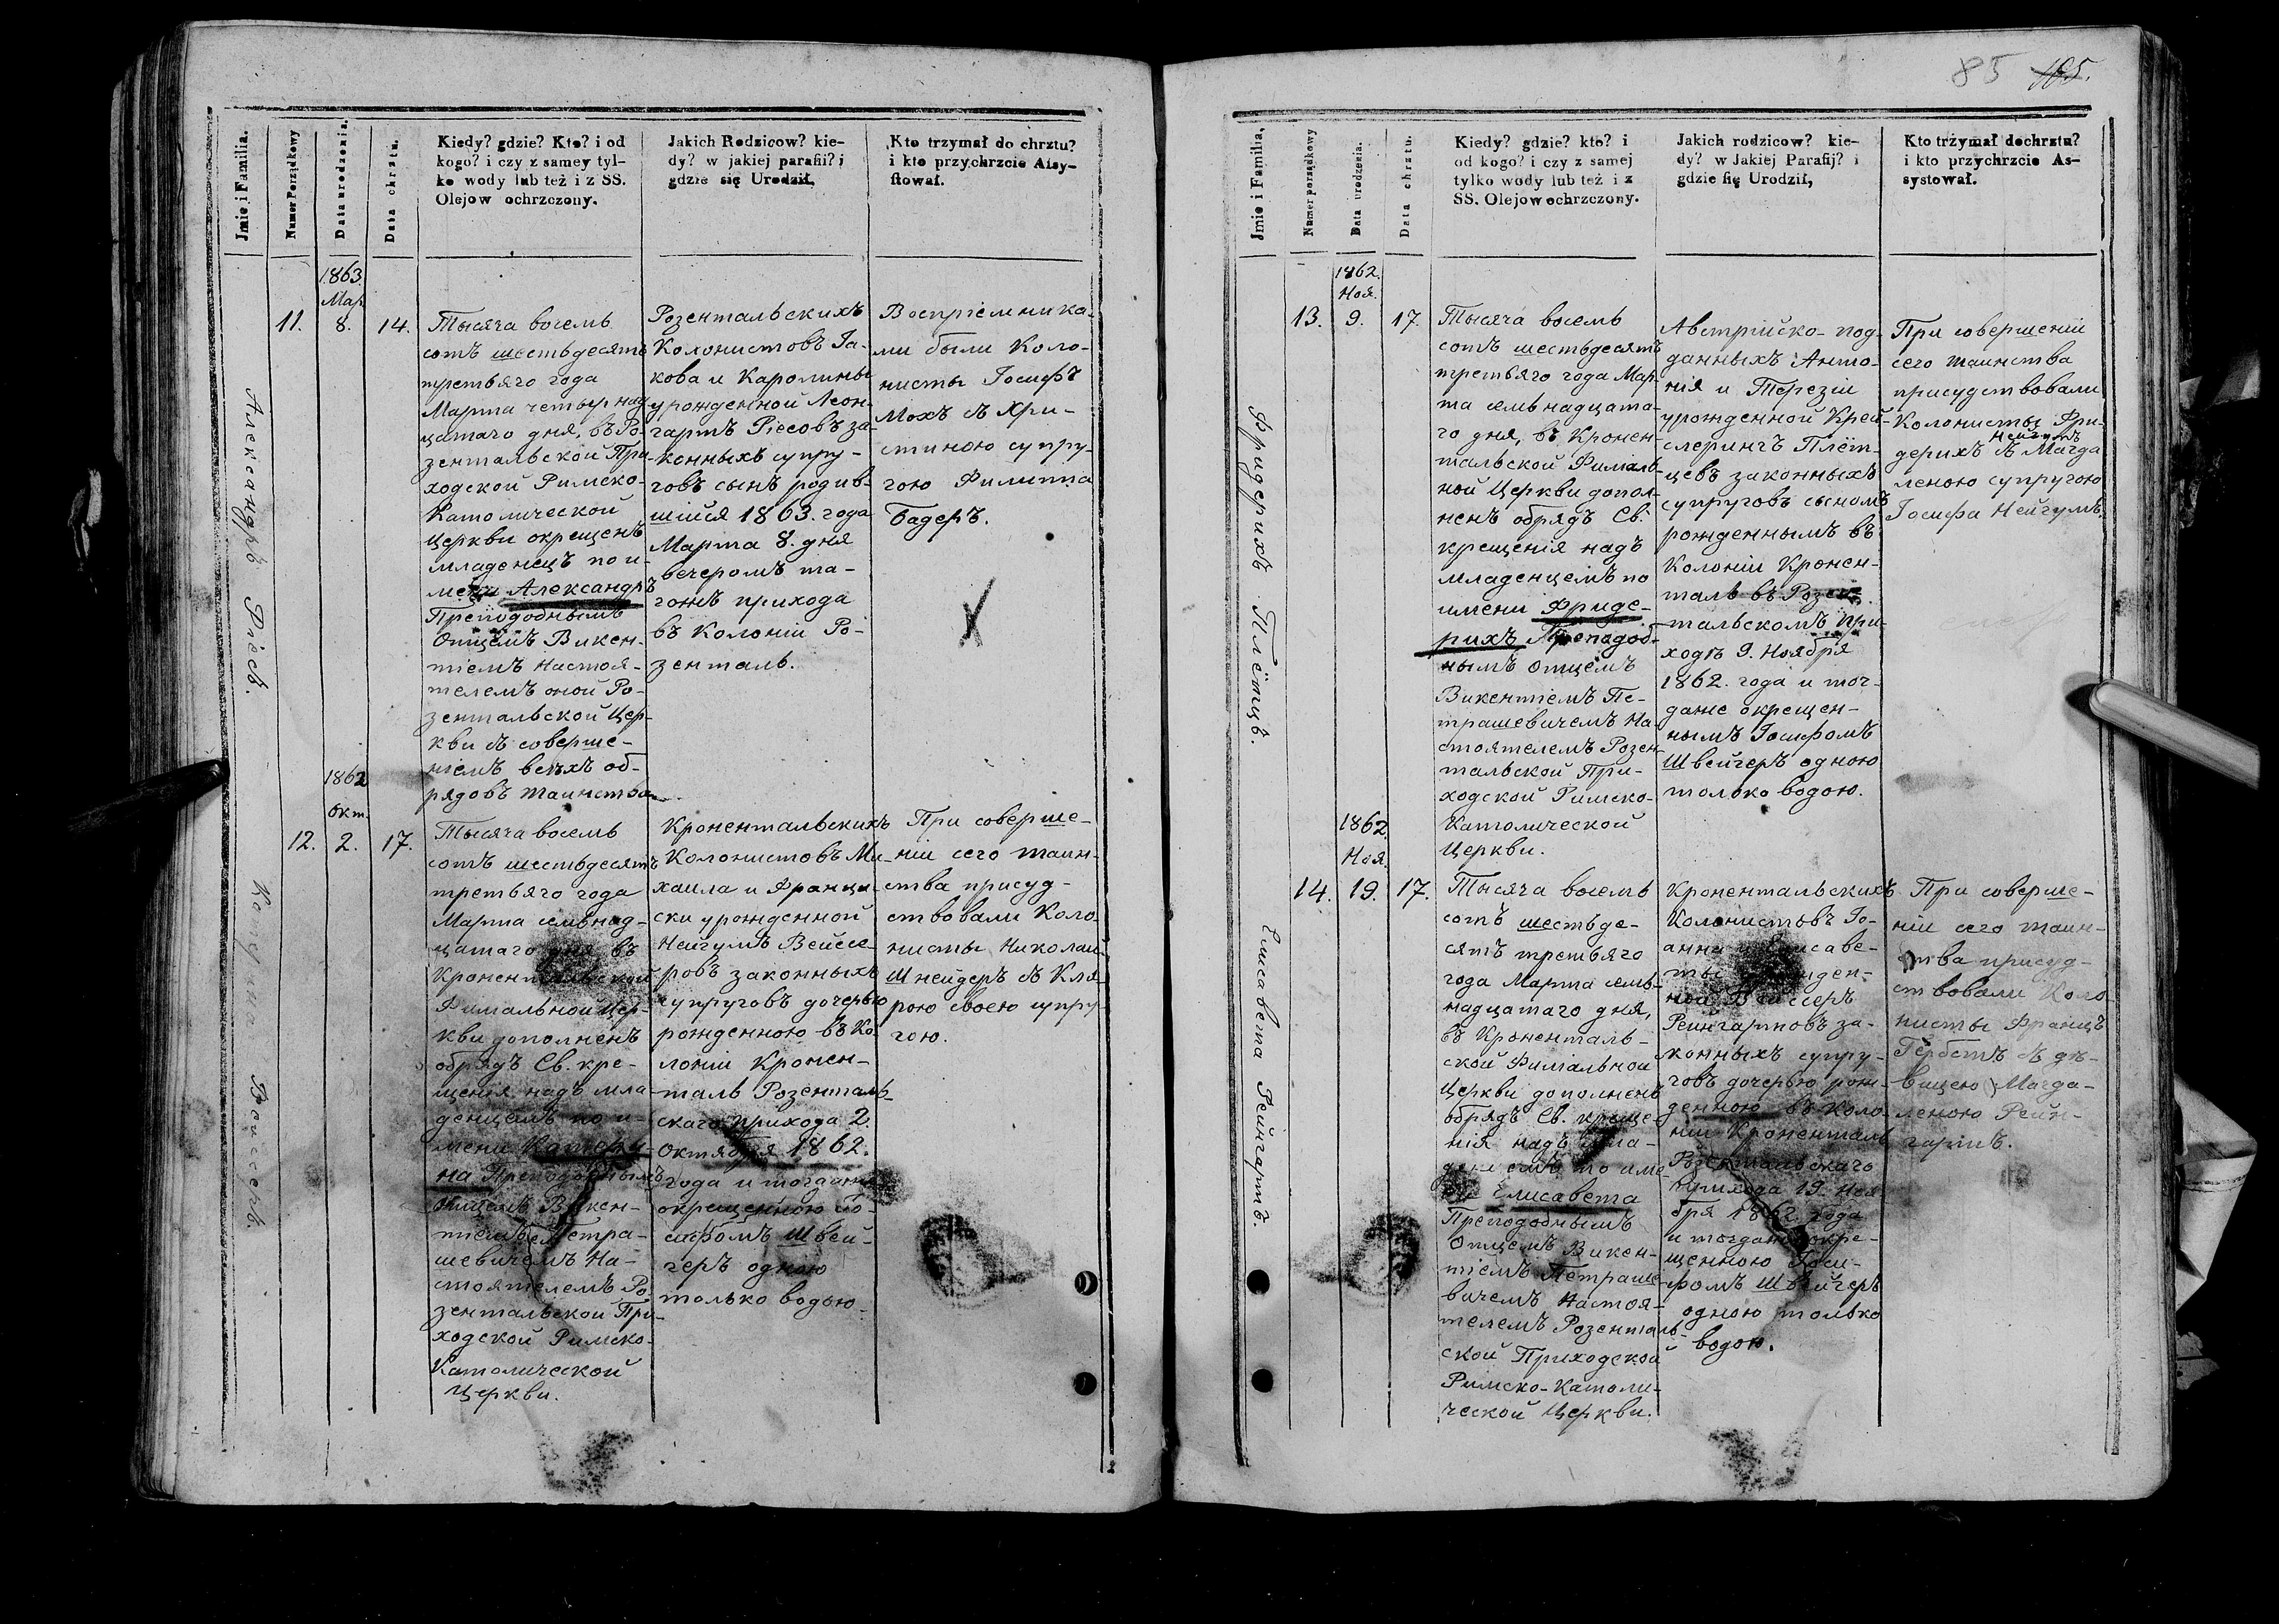 85 105.
Jmie i Familia.
Numer Porządkowy
Data urodzenia.
Data chrztu.
Kiedy? gdzie? Kto? i od
kogo? i czy z samey tyl-
ko wody lub też i z SS.
Olejow ochrzczony.
Jakich Rodzicow? kie-
dy? w jakiej parafii? i
gdzie się Urodził,
Kto trzymał do chrztu?
i kto przychrzcie Assy-
stował.
Александръ Ріесъ.
1863.
Мар.
11. 8. 14.
Тысяча восемь
сотъ шестьдесятъ
третьяго года
Марта четырнад-
цатаго дня, въ Ро-
зентальской При-
ходской Римско-
Католической
Церкви окрещенъ
младенецъ по и-
мени Александръ
Преподобнымъ
Отцемъ Викен-
тіемъ Настоя-
телемъ оной Ро-
зентальской Цер-
кви съ соверше-
ніемъ всѣхъ об-
рядовъ таинства.
Розентальскихъ
Колонистовъ Іа-
кова и Каролины
урожденной Леон-
гартъ Ріесовъ за-
конныхъ супру-
говъ сынъ родив-
шійся 1863. года
Марта 8. дня
вечеромъ та-
гожъ прихода
въ Колоніи Ро-
зенталь.
Воспріемника-
ми были Коло-
нисты Іосифъ
Мохъ съ Хри-
стиною супру-
гою Филиппа
Бадеръ.
Катерина Вейсеръ
1862
Окт.
12. 2. 17.
Тысяча восемь
сотъ шестьдесятъ
третьяго года
Марта семьнад-
цатаго дня въ
Кронентальской
Филіальной Цер-
кви дополненъ
обрядъ Св. кре-
щенія надъ мла-
денцемъ по и-
мени Катери-
на Преподобнымъ
Отцемъ Викен-
тіемъ Петра-
шевичемъ На-
стоятелемъ Ро-
зентальской При-
ходской Римско-
Католической
Церкви.
Кронентальскихъ
Колонистовъ Ми-
хаила и Францис-
ски урожденной
Нейгумъ Вейсе-
ровъ законныхъ
супруговъ дочерью
рожденною въ Ко-
лоніи Кронен-
таль Розенталь-
скаго прихода 2.
Октября 1862.
года и тогдаже
окрещенною Іо-
сифомъ Швей-
геръ одною
только водою.
При соверше-
ніи сего таин-
ства присуд-
ствовали Коло-
нисты Николай
Шнейдеръ съ Кла-
рою своею супру-
гою.
Jmie i Familia,
Numer porządkowy
Data urodzenia.
Data chrztu.
Kiedy? gdzie? kto? i
od kogo? i czy z samej
tylko wody lub też i z
SS. Olejow ochrzczony.
Jakich rodzicow? kie-
dy? w Jakiej Parafij? i
gdzie się Urodził,
Kto trżymał dochrztu?
i kto przychrzcie As-
systował.
Фридерихъ Плётцъ.
1862.
Ноя.
13. 9. 17.
Тысяча восемь
сотъ шестьдесятъ
третьяго года Мар-
та семьнадцата-
го дня, въ Кронен-
тальской Филіаль-
ной Церкви допол-
ненъ обрядъ Св.
крещенія надъ
младенцемъ по
имени Фриде-
рихъ Преподоб-
нымъ Отцемъ
Викентіемъ Пе-
трашевичемъ На-
стоятелемъ Розен-
тальской При-
ходской Римско-
Католической
Церкви.
Австрійско-под-
данныхъ Анто-
нія и Терезіи
урожденной Крей-
слерингъ Плёт-
цевъ законныхъ
супруговъ сыномъ
рожденнымъ въ
Колоніи Кронен-
таль въ Розен-
тальскомъ При-
ходѣ 9. Ноября
1862. года и тог-
даже окрещен-
нымъ Іосифомъ
Швейгеръ одною
только водою.
При совершеніи
сего таинства
присудствовали
Колонисты Фри-
дерихъ Нейгумъ съ Магда-
леною супругою
Іосифа Нейгумъ.
Елисавета Рейнгартъ.
1862.
Ноя.
14. 19. 17.
Тысяча восемь
сотъ шестьде-
сятъ третьяго
года Марта семь-
надцатаго дня,
въ Кроненталь-
ской Филіальной
Церкви дополненъ
обрядъ Св. креще-
нія надъ мла-
денцемъ по име-
ни Елисавета
Преподобнымъ
Отцемъ Викен-
тіемъ Петраше-
вичемъ Настоя-
телемъ Розенталь-
ской Приходской
Римско-Католи-
ческой Церкви.
Кронентальскихъ
Колонистовъ Іо-
анна и Елисаве-
ты урожден-
ной Вейсеръ
Рейнгартовъ за-
конныхъ супру-
говъ дочерью рож-
денною въ Коло-
ніи Кроненталь
Розентальскаго
прихода 19. Ноя-
бря 1862. года
и тогдаже окре-
щенною Іоси-
фомъ Швейгеръ
одною только
водою.
При соверше-
ніи сего таин-
ства присуд-
ствовали Коло-
нисты Францъ
Гербстъ съ дѣ-
вицею Магда-
леною Рейн-
гартъ.